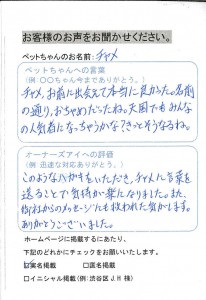 お客様のお声をお聞かせください。
ペットちゃんのお名前:チャメ
ペットちゃんへの言葉
(例:○○ちゃん今までありがとう。)
チャメ、お前に出会えて本当に良かった。名前
の通り、おちゃめだったね。天国でもみんな
の人気者になっちゃうかな?きっとそうなるね。
オーナーズアイへの評価
(例:迅速な対応ありがとう。)
このようなハガキをいただき、チャメに言葉を
送ることで気持が楽になりました。また、
御社からのメッセージにも救われた気がします。
ありがとうございました。
ホームページに掲載するにあたり、
下記のどれかにチェックをお願いいたします。
☑実名掲載 □匿名掲載
□イニシャル掲載(例:渋谷区J.H様)